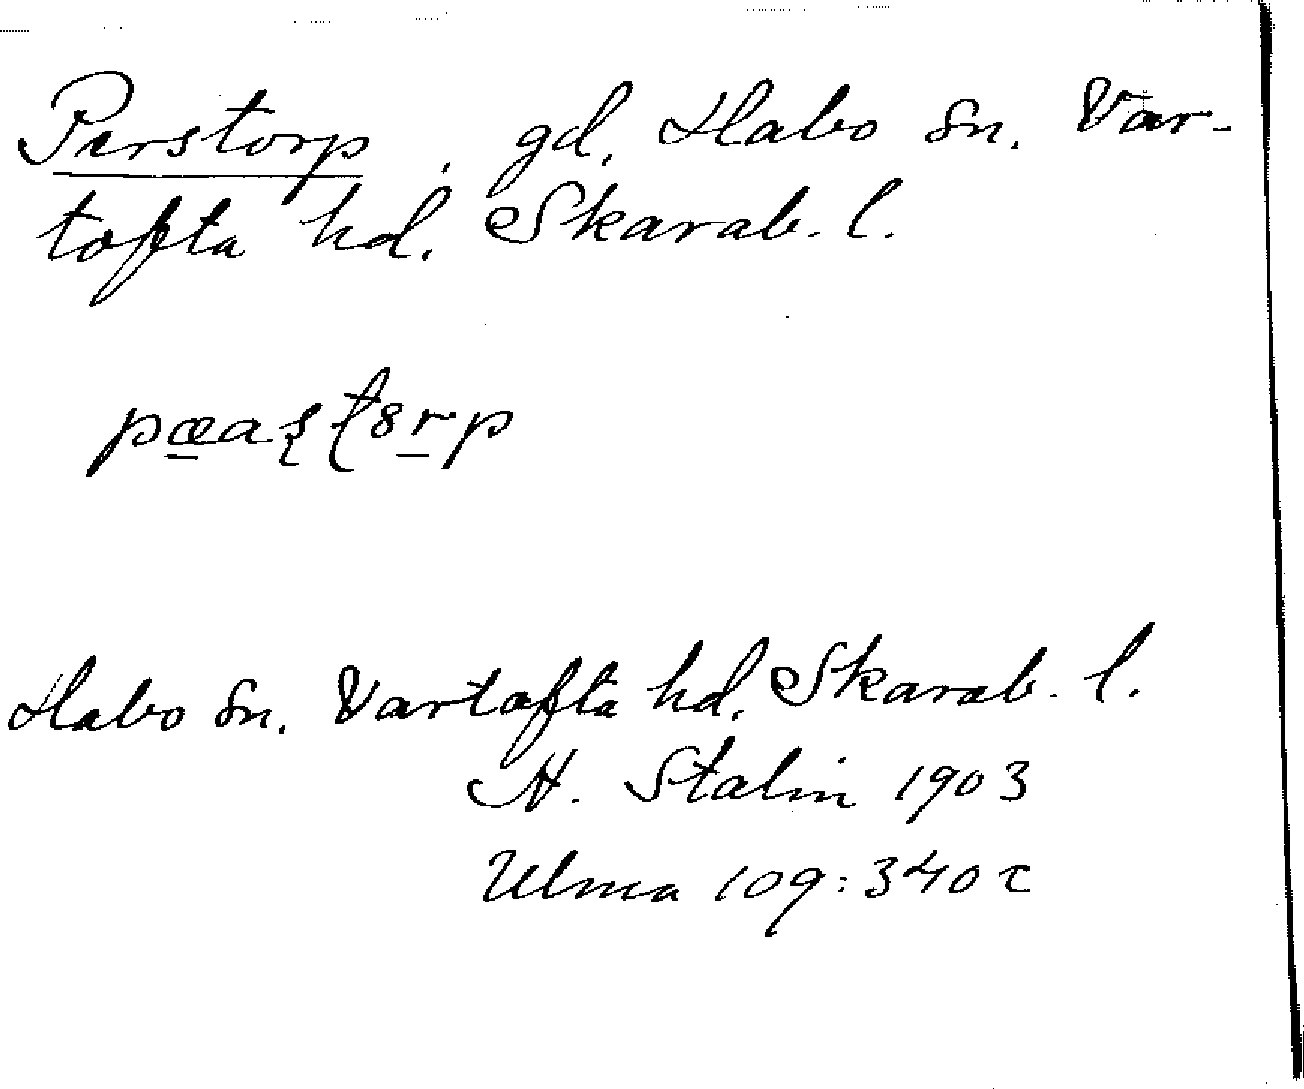 Perstorp, gd. Habo sn. Var-
tofta hd. Skarab. l.
Habo sn. Vartofta hd. Skarab. l.
H. Stalin 1903
Ulma 109:340 c